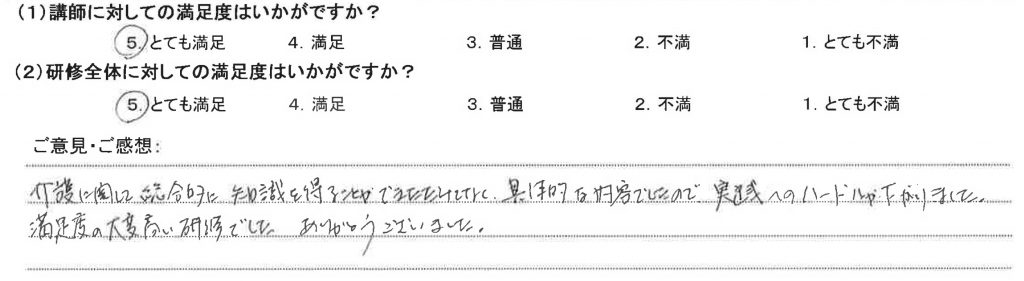 (1)講師に対しての満足度はいかがですか？
5. とても満足 4. 満足 3. 普通 2. 不満 1. とても不満
(2)研修全体に対しての満足度はいかがですか？
5. とても満足 4. 満足 3. 普通 2. 不満 1. とても不満
ご意見・ご感想：
介護に関して総合的に知識を得ることができただけでなく、具体的な内容でしたので実践へのハードルが下がりました。
満足度の大変高い研修でした。ありがとうございました。